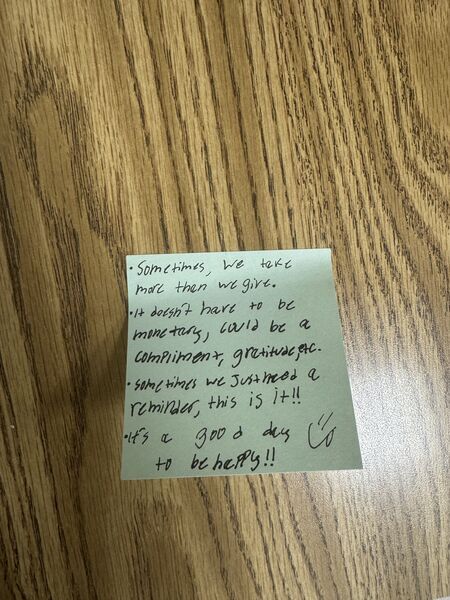 • Sometimes, we take
more than we give.
• It doesn't have to be
monetary, could be a
compliment, gratitude, etc.
• sometimes we just need a
reminder, this is it!!
• It's a good day
to be happy!!